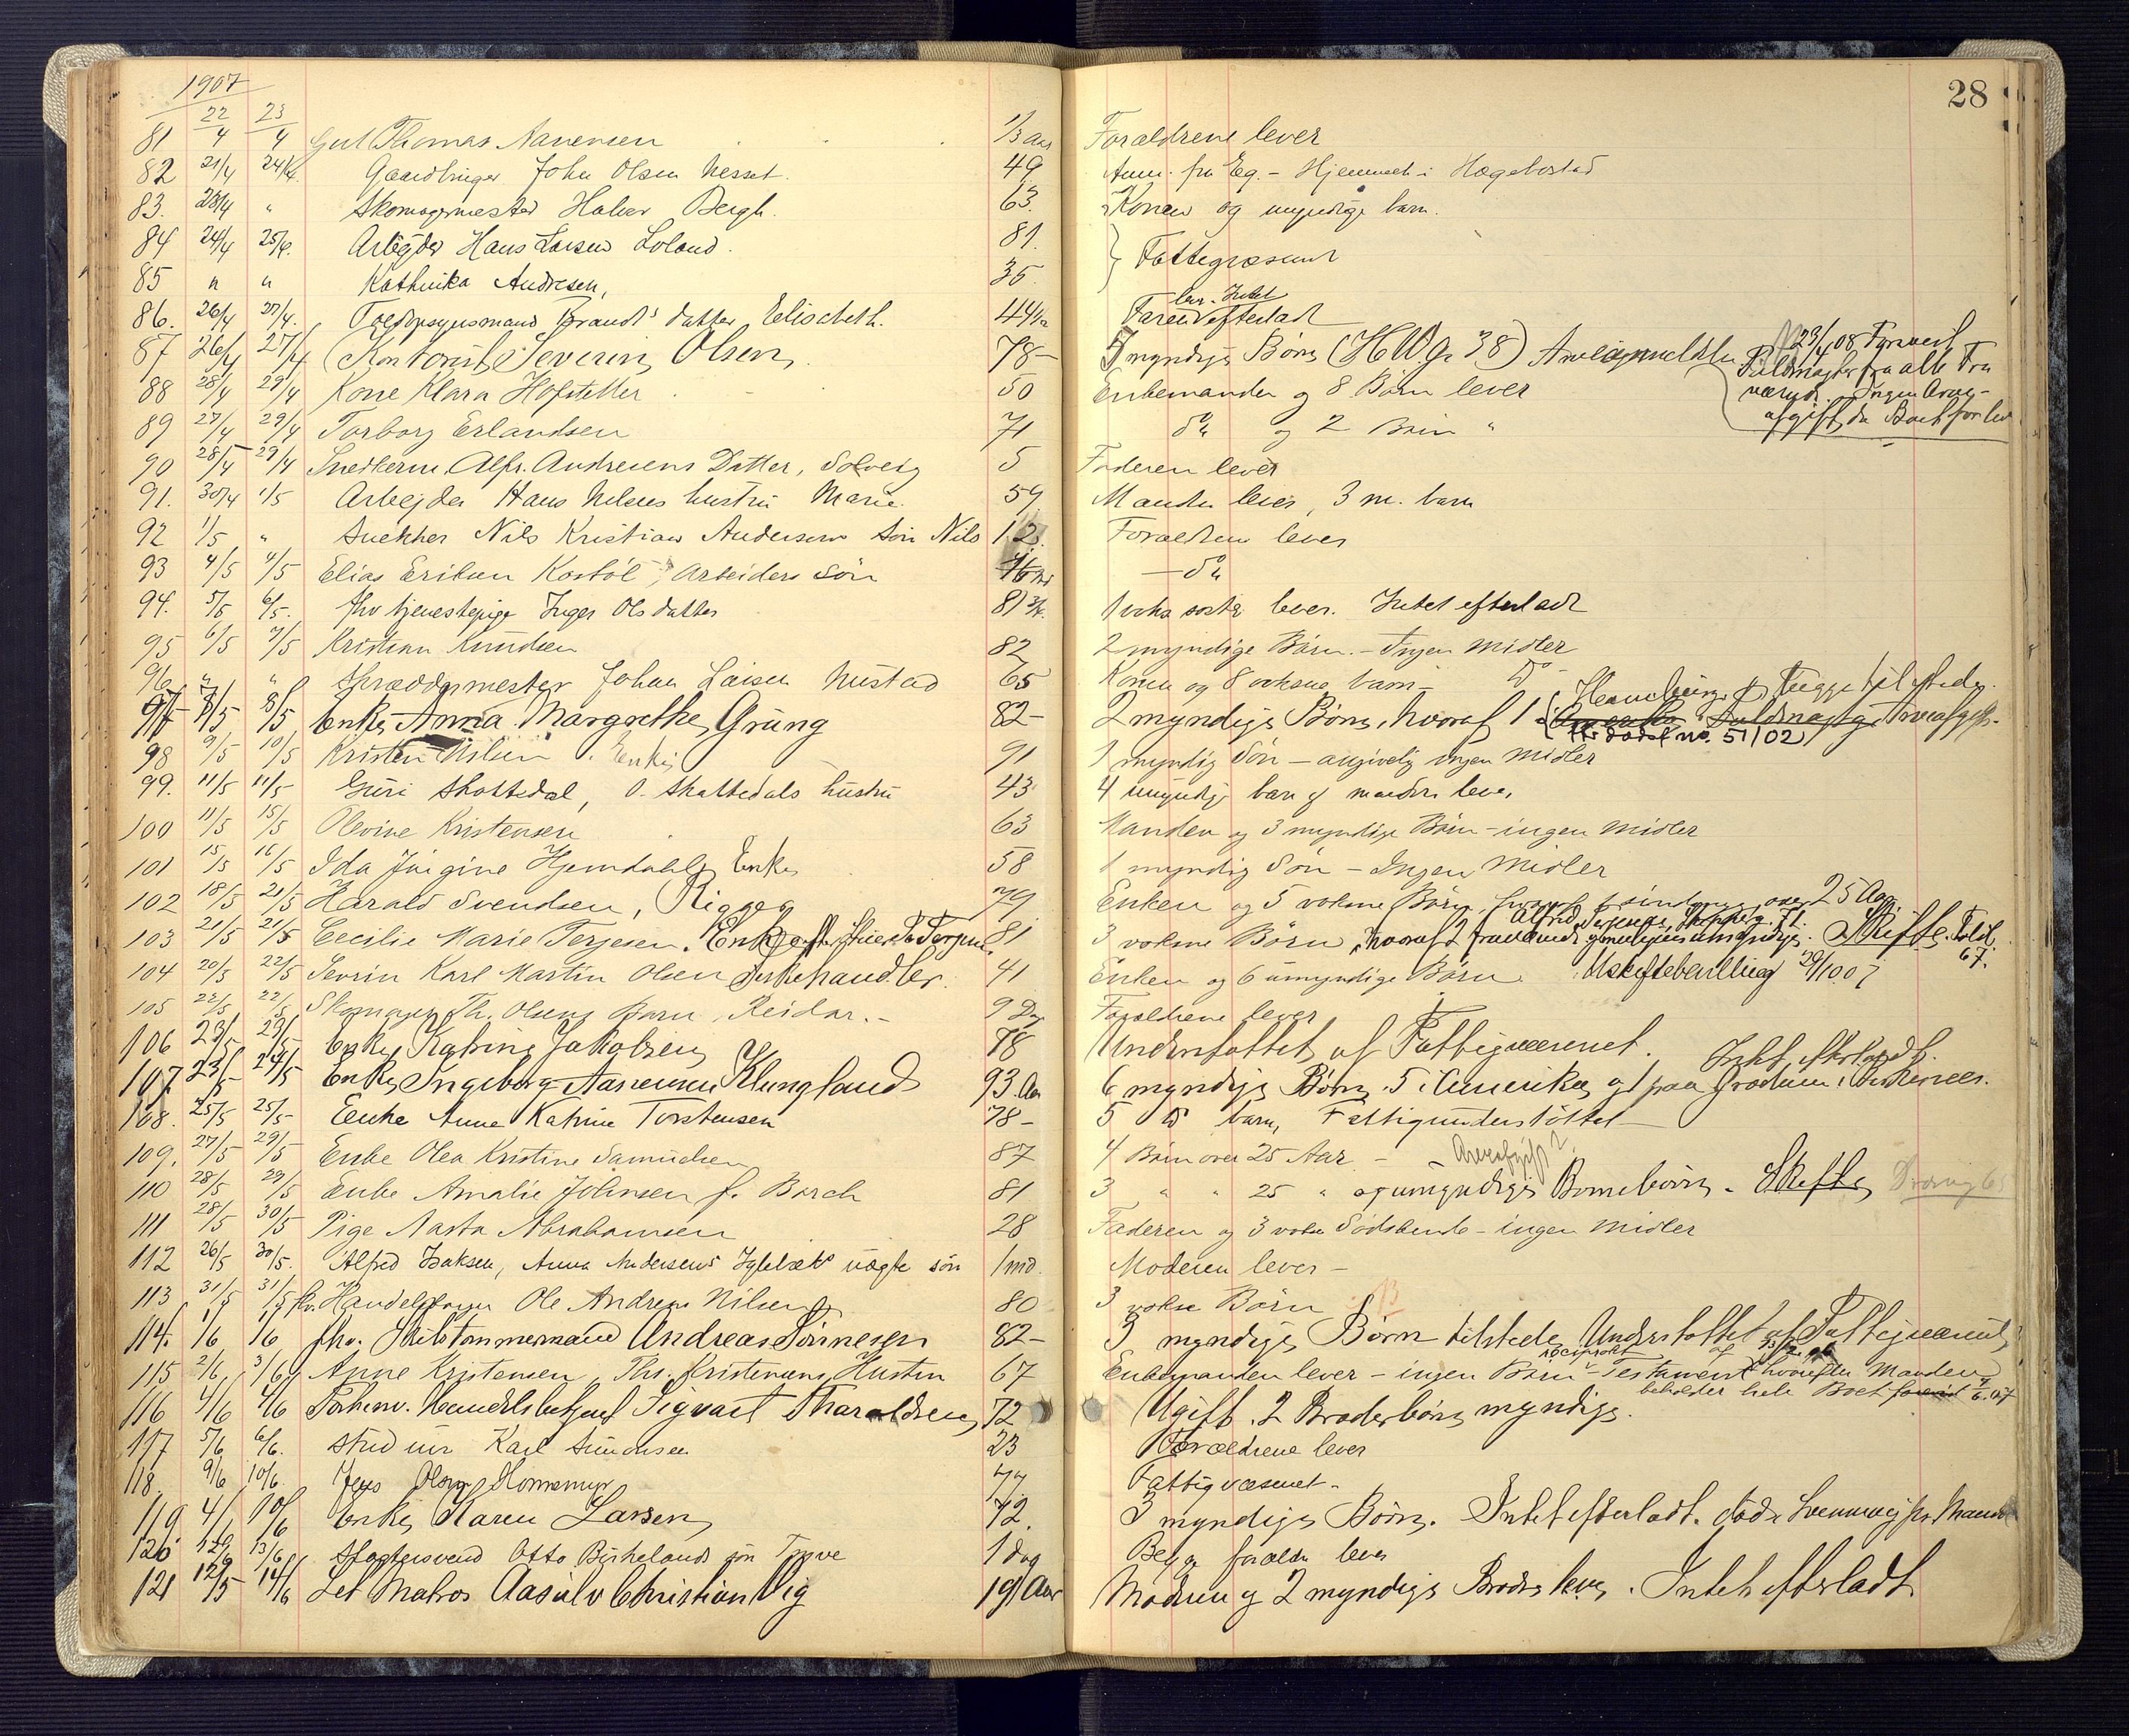 1907
28
81 22/4 23/4 Gut Thomas Aanensen 1/3 aar Forældrene lever
82 21/4 24/4 Gaardbruger John Olsen Nesset. 49 Anm. fra Eg. - Hjemmeh. i Hægebostad
83. 23/4 " Skomagermester Halvor Bergh. 63. Konen og umyndige barn.
84 24/4 25/4. Arbejder Hans Larsen Loland. 81. Fattigvæsenet
85 " " Kathinka Andresen, 35
86. 26/4 27/4. Toldopsynsmand Brandts datter Elisabeth. 44 1/2 Faren lever. Intet efterladt
87 26/4 27/4 Kontorist Severin Olsen 78- myndige Børn (H.W.gr. 38) Arveanmeldelse 23/4 08
Fuldmagter fra alle
Ingen Arve-
afgift da Boet
88 28/4 29/4 Kone Klara Hofstetter 50 Enkemanden og 8 Børn lever
89 27/4 29/4 Torborg Erlandsen 71 do og 2 Børn "
90 28/4 29/4 Snedkerm. Alfr. Andresens Datter, Solveig 5 Faderen lever
91. 30/4 1/5 Arbejder Hans Nilsens hustru Marie 59 Manden lever, 3 m. barn
92 1/5 " Snekker Nils Kristian Andersens søn Nils 12. Forældrene lever
93 4/5 4/5 Elias Eriksen Kostøl, Arbeiders søn - do
94. 5/5 6/5. fhv tjenestepige Inger Olsdatter 81 1 voks. søster lever. Intet efterladt
95 6/5 7/5 Kristian Knudsen 82 2 myndige Børn. - Ingen Midler
96 " " Skræddermester Johan Larsen Nustad 65 Konen og 8 voksne barn - do -
97 7/5 8/5 Enke Anna Margrethe Grung 82- 2 myndige Børn, hvoraf 1 i Hamburg, begge tilstede. Arveafgift.
no. 51/02
98 9/5 10/5 Kristen Nilsen. Enke 91 1 myndig Søn - angivelig ingen Midler
99. 11/5 11/5 Guri Skottedal, O. Skottedals hustru 43 4 umyndige barn og manden lever
100 11/5 15/5 Olevine Kristensen 63 Manden og 3 myndige Børn - ingen Midler
101 15/5 16/5 Ida Jørgine Hjemdahl, Enke 58 1 myndig Søn - Ingen Midler
102 18/5 21/5 Harald Svendsen, Rigaga 79 Enken og 5 voksne Børn, over 25 Aar.
103 21/5 21/5 Cecilie Marie Terjesen. Enke 81 3 voksne Børn, hvoraf 2 Skifte.
67.
104 20/5 22/5 Sevrin Karl Martin Olsen 41 Enken og 6 umyndige Børn. Uskiftebevilling 29/10 07
105 22/5 22/5 Skomager Th. Olsens Barn, Reidar. - 9 Dg Forældrene lever
106 23/5 23/5 Enke Katrine Jakobsen 78 Understøttet af Fattigvæsenet. Intet efterladt.
107 23/5 24/5 Enke Ingeborg Aanensen Klungland 93 Aar 6 myndige Børn, 5 i Amerika og 1 paa
108. 25/5 25/5 Enke Anne Katrine Torstensen 78- 5 do barn, Fattigunderstøttet
109. 27/5 29/5 Enke Olea Kristine Samuelsen 87 4 Børn over 25 Aar - Arveafgift?
110 28/5 29/5 Enke Amalie Johnsen f. Barch 81 3 " " 25 " og umyndige Børnebørn - Skifte
111 28/5 30/5 Pige Aasta Abrahamsen 28 Faderen og 3 voksne Sødskende - ingen Midler
112 26/5 30/5. Alfred Isaksen, Anna Andersens uægte søn 1 md. Moderen lever -
113 31/5 31/5 fhv. Handelsborger Ole Andreas Nilsen 80 3 voksne Børn
114. 1/6 1/6 fhv. Skibstømmermand Andreas Tønnesen 82- 3 myndige Børn tilstede Understøttet af Fattigvæsenet
115 2/6 3/6 Anne Kristensen, Ths. Kristensens Hustru 67 Enkemanden lever - ingen Børn - reciprokt Testament hvorefter Manden
beholder hele Boet
116 4/6 4/6 Forhenv. Handelsbetjent Sigvart Tharaldsen 72 Ugift. 2 Broderbørn myndige.
117 5/6 6/6. stud. jur Karl Simonsen 23 Forældrene lever
118. 9/6 10/6. Jens Olsen Homemyr 77. Fattigvæsenet.
119 4/6 10/6 Enke Karen Larsen 72. 3 myndige Børn. Intet efterladt.
120 12/6 13/6 Slagtersvend Otto Birkelands søn Trygve 1 dag Begge forældre lever
121 12/5 14/6 Let Matros Aasulv Christian Vig 19 Aar Moderen og 2 myndige Brødre lever. Intet efterladt